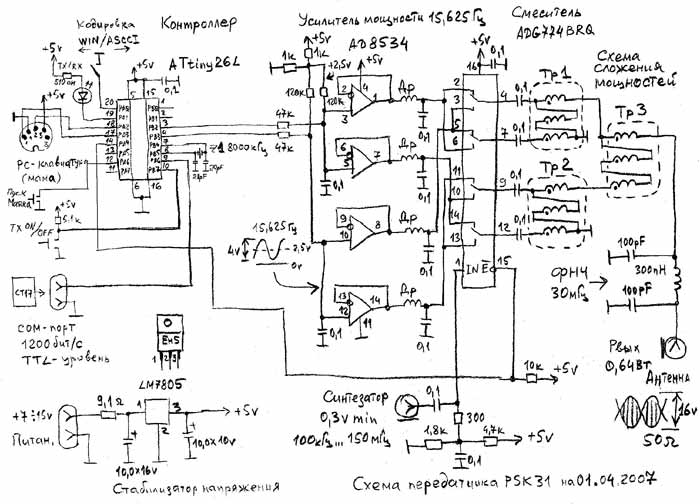 Кодировка
WIN/ASCCI
Контроллер
Усилитель мощности 15,625Гц
Смеситель
ADG774BRQ
Схема
сложения
мощностей
+5v
+5v
ATtiny26L
1к
+5v
1к
AD8534
+5v
16
0,1
TX/RX
510 ом
+2,5v
+5v
120к
120к
0,1
Др
Тр1
Тр3
+5v
5
15
20
19
18
17
14
13
12
11
PB0
PB1
PB2
PB3
PB4
PB5
PB6
PB7
1
2
3
4
7
8
9
10
6
16
47к
47к
8000кГц
PC-клавиатура
(мама)
Пуск
Маяка
+5v
5.1к
TX ON/
OFF
2
3
1
4
0,1
6
5
7
Др
0,1
Др
9
10
8
0,1
Др
13
12
14
11
0,1
0,1
2
3
5
6
11
10
14
13
4
7
9
12
0,1
0,1
0,1
0,1
Тр2
1
IN
E
15
15,625Гц
4v
2,5v
0v
CT17
COM-порт
1200 бит/с
TTL-уровень
100pF
ФНЧ
30мГц
300nH
100pF
Рвых
0,64Вт
Антенна
16v
50Ω
ЕН5
1
2
3
LM7805
+7÷15v
Питан.
9,1Ω
1
3
2
+5v
10,0x16v
10,0x10v
Стабилизатор напряжения
Синтезатор
0,3v min
100кГц...150мГц
0,1
300
10к
+5v
1,8к
4,7к
+5v
0,1
Схема передатчика PSK31 на 01.04.2007